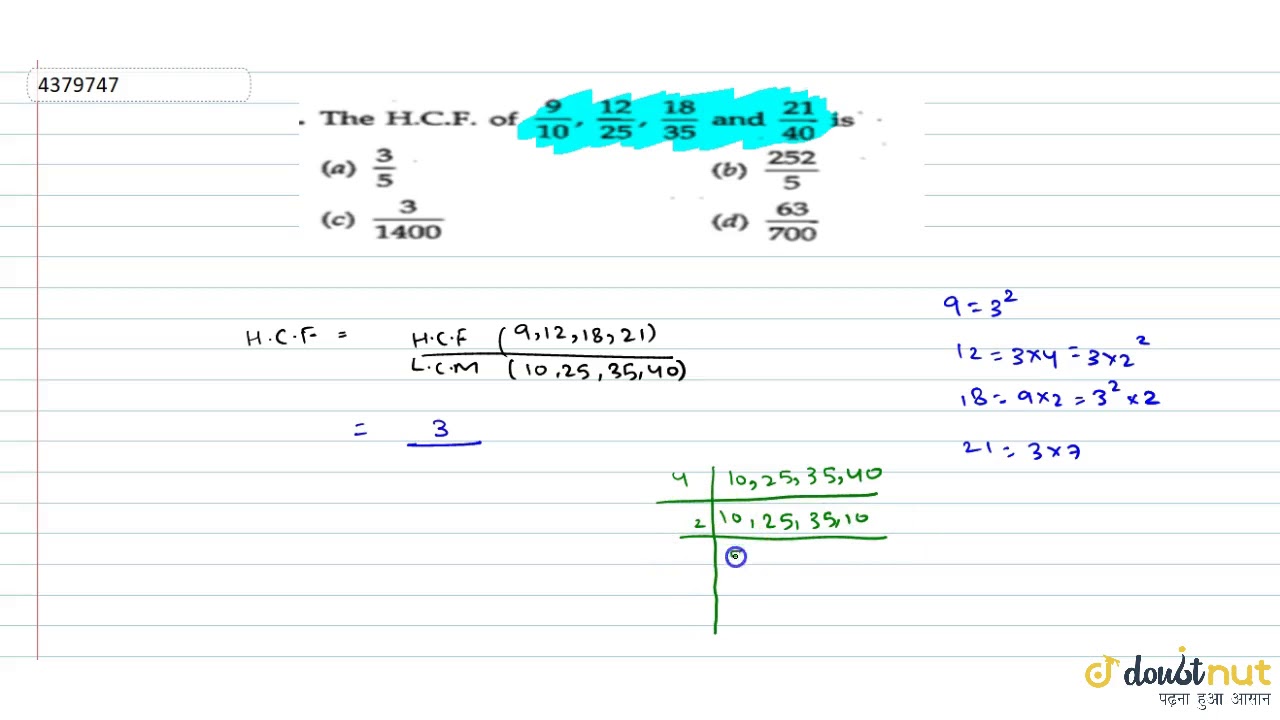 4379747
. The H.C.F. of 9/10, 12/25, 18/35 and 21/40 is
(a) 3/5 (b) 252/5
(c) 3/1400 (d) 63/700
H.C.F = H.C.F (9,12,18,21)
L.C.M (10,25,35,40)
= 3
9 = 3²
12 = 3×4 = 3×2²
18 = 9×2 = 3²×2
21 = 3×7
4 | 10,25,35,40
2 | 10,25,35,10
5
doubtnut
पढ़ना हुआ आसान